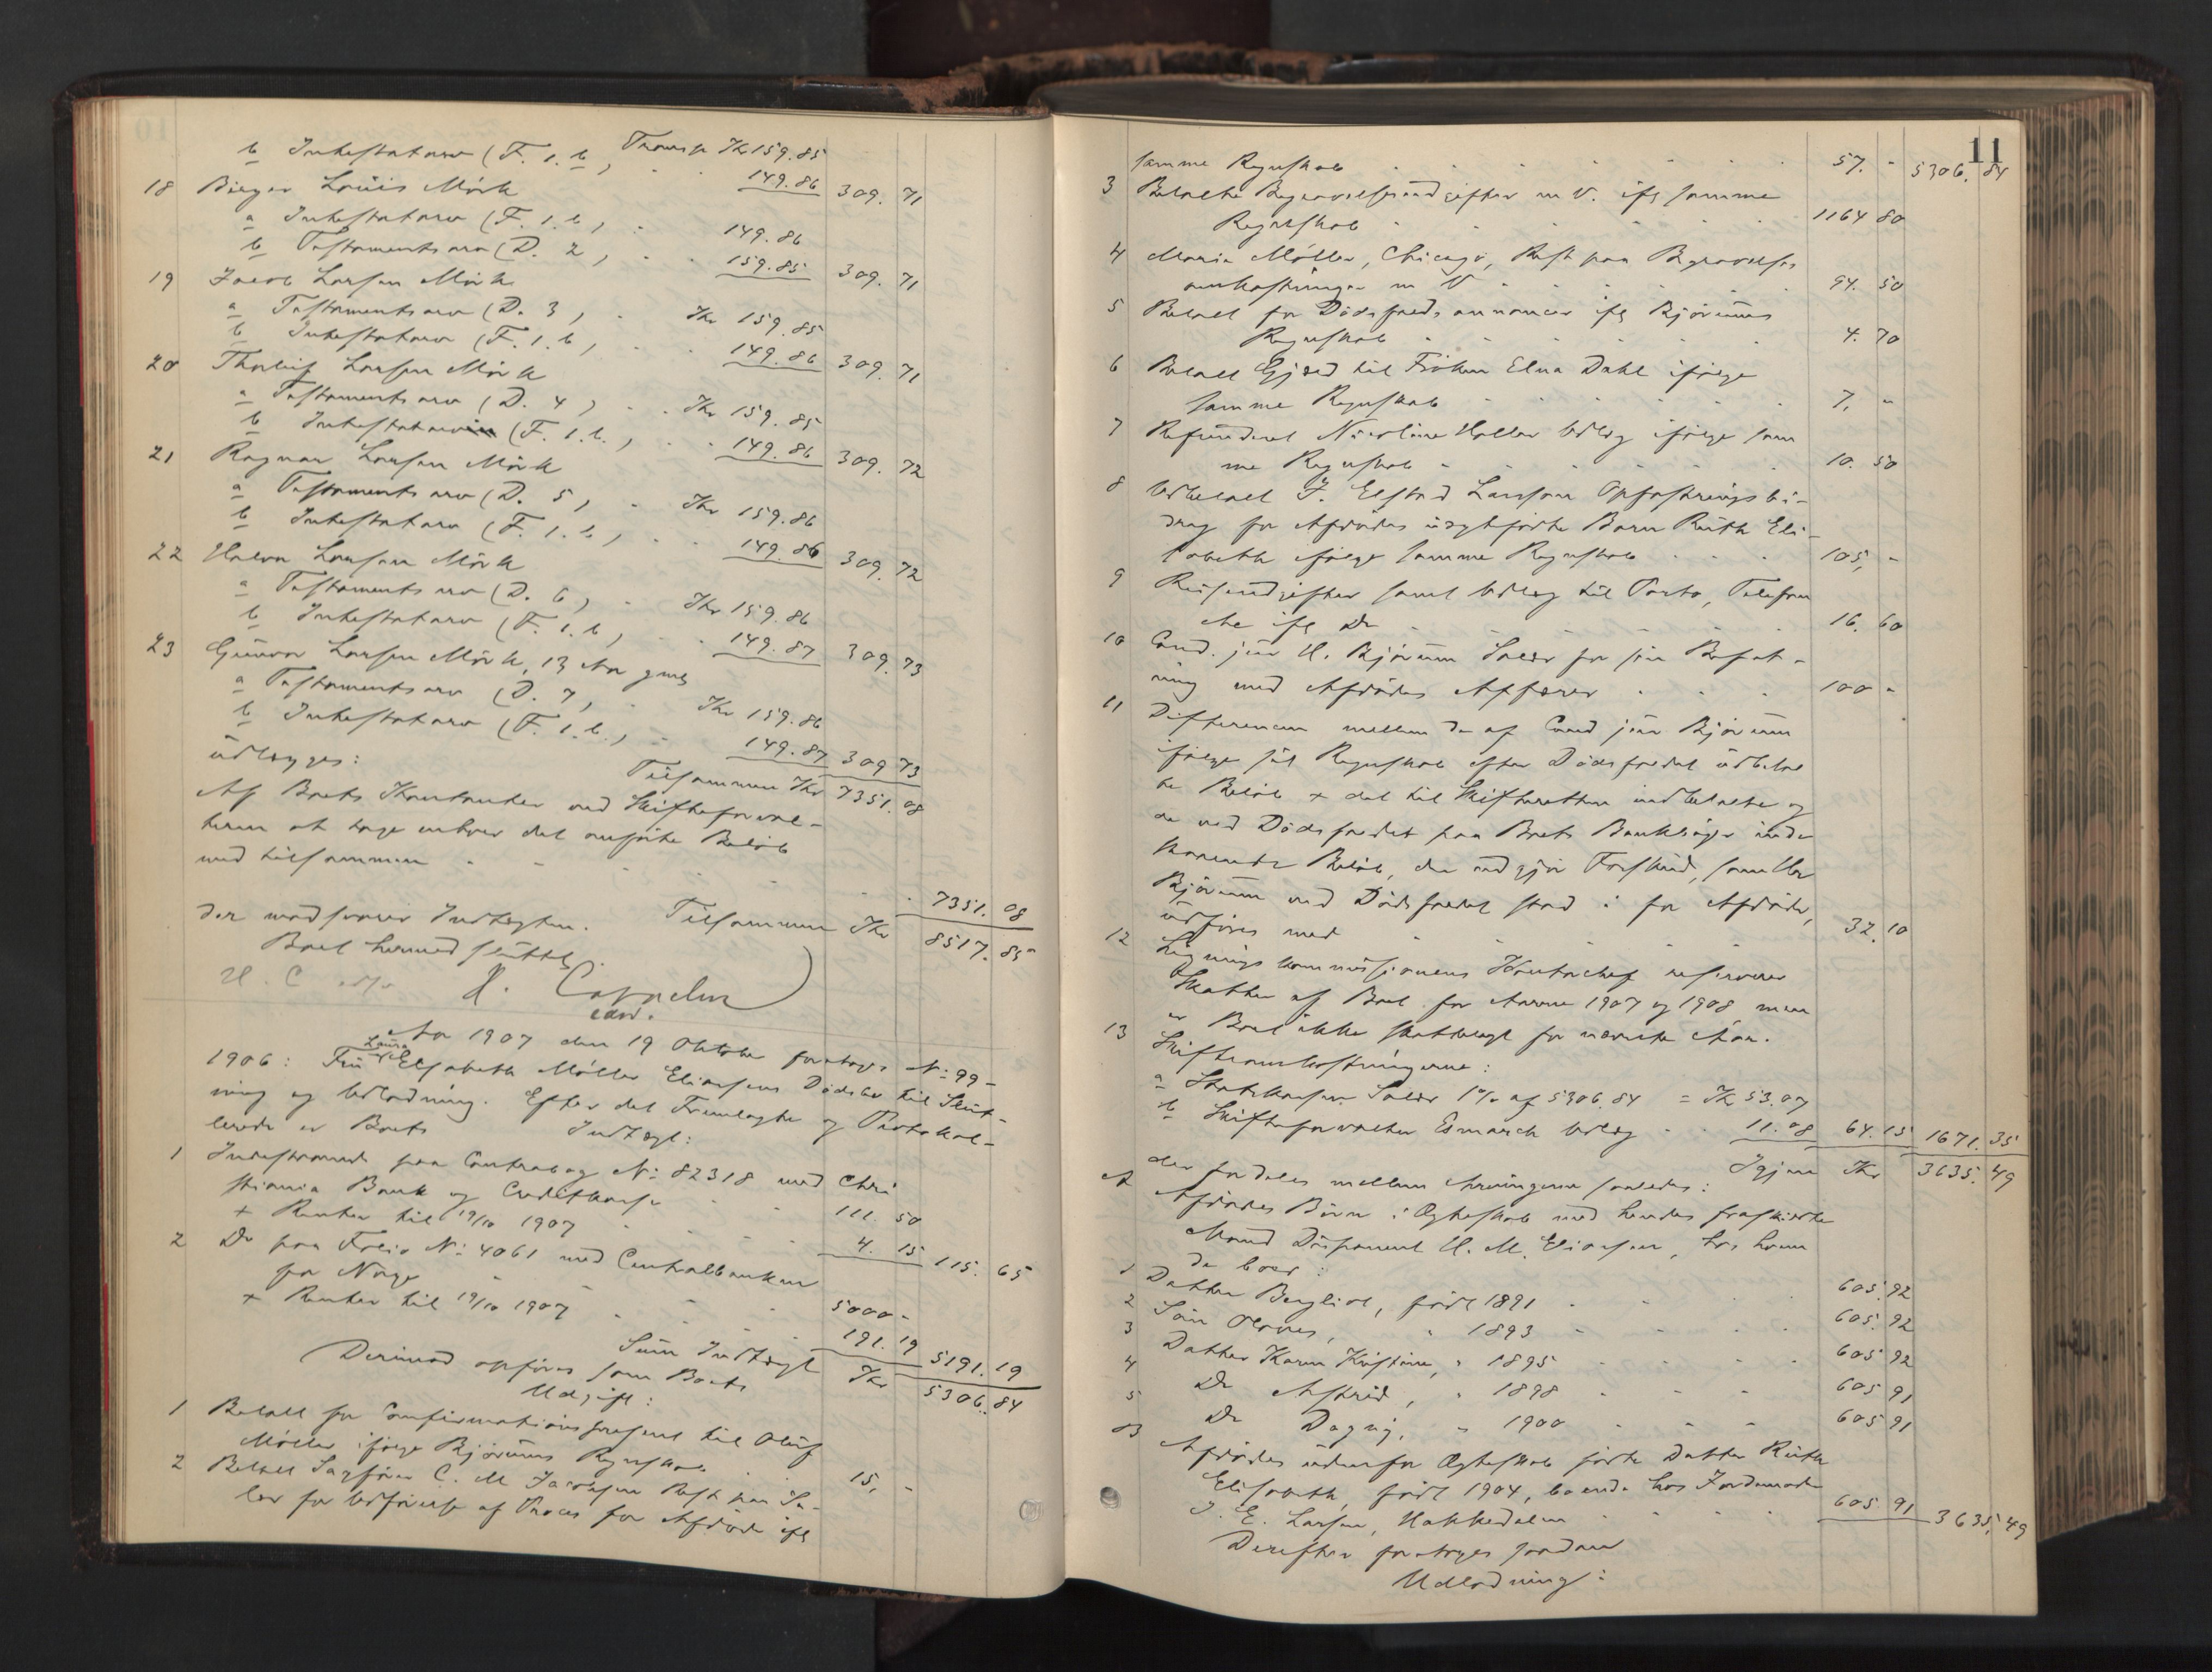 b Intestatarv (F. 1. b, Transp Kr 159.85
149.86 309. 71
18 Birger Louis Mörk
a Intestatarv (F. 1. b, 149.86
b Testamentsarv (D. 2, 159.85 309. 71
19 Jacob Larsen Mörk
a Testamentsarv (D. 3, Kr 159.85
b Intestatarv (F. 1. b, 149.86 309. 71
20 Thorleif Larsen Mörk
a Testamentsarv (D. 4, Kr 159.85
b Intestatarv (F. 1. b., 149.86 309. 72
21 Ragnar Larsen Mörk
a Testamentsarv (D. 5, Kr 159.86
b Intestatarv (F. 1. b, 149.86 309. 72
22 Larsen Mörk
a Testamentsarv (D. 6, Kr 159.86
b Intestatarv (F. 1. b, 149.87 309. 73
23 Gunvor Larsen Mörk, 13 Aar gml
a Testamentsarv (D. 7, Kr 159.86
b Intestatarv (F. 1. b., 149.87 309 73
udlægges: Tilsammen Kr 7351. 08
Af Boets Kontanter ved Skifteforval-
teren at tage enhver det anførte Beløb
med tilsammen 7351. 08
der modsvarer Indtægten. Tilsammen Kr 8517. 85
Boet hermed sluttet.
Cappelen
edsv.
Aar 1907 den 19 Oktober foretoges No 99-
1906: Fru Laura Elisabeth Möller Eliassens Dødsbo til Slut-
ning og Udlodning. Efter det Fremlagte og Protokol-
lerede er Boets Indtægt:
1 Indestaaende paa Contrabog No 82318 med Chri
stiania Bank og Creditkasse 111. 50
+ Renter til 19/10 1907 4. 15 115. 65
2 Do paa Folio No 4061 med Centralbanken
for Norge 5000 -
+ Renter til 19/10 1907 191. 19 5191. 19
Sum Indtægt Kr 5306. 84
Derimod opføres som Boets
Udgift:
1 Betalt for Confirmationspresent til Oluf
Møller ifølge Bjørums Regnskab 15, -
2 Betalt Sagfører C. M. Jacobsen Rest paa Sa-
lær for Udførelse af Proces for Afdøde ifl
11
samme Regnskab 57. - 5306. 84
3 Betalte Begravelsesudgifter m V. ifl samme
Regnskab 1164 80
4 Marie Möller, Chicago, Rest paa Begravelses
omkostninger m V 94. 50
5 Betalt for Dödsfaldsannoncer ifl Bjørums
Regnskab 4. 70
6 Betalt Gjæld til Frøken Elna Dahl ifølge
samme Regnskab 7, -
7 Refunderet Nicoline Udlæg ifølge sam
me Regnskab 10. 50
8 Udbetalt J. Elstad Larsen Opfostringsbi-
drag for Afdødes uægtefødte Barn Ruth Eli-
sabeth ifølge samme Regnskab 105, -
9 Reiseudgifter samt Udlæg til Porto, Telefon
etc ifl Do 16. 60
10 Cand. jur H. Bjørum Salær for sin Befat-
ning med Afdødes Affærer 100 -
11 Differencen mellem de af Cand jur Bjørum
ifølge sit Regnskab efter Dødsfaldet udbetal
te Beløb + det til Skifteretten indbetalte og
de ved Dødsfaldet paa Boets Bankbøger inde
staaende Beløb, der udgjør Forskud, som Hr
Bjørum ved Dødsfaldet stod i for Afdøde,
udføres med 32. 10
12 Ligningskommissionens Kontorchef reserverer
Skatter af Boet for Aarene 1907 og 1908 men
er Boet ikke skattelagt for nævnte Aar.
13 Skifteomkostningerne:
a Statskassens Salær 1% af 5306.84 = Kr 53.07
b Skifteforvalter Esmarch Udlæg 11.08 64.15 1671. 35
Igjen Kr 3635. 49
der fordeles mellem Arvingerne saaledes:
A Afdødes Börn i Ægteskab med hendes fraskilte
Mand Disponent H. M. Eliassen, hos hvem
de boer:
1 Datter Bergliot, født 1891 605. 92
2 Sön " 1893 605. 92
3 Datter Karen Kristine, " 1895 605 92
4 Do Astrid, " 1898 605 91
5 Do Dagny, " 1900 605 91
B Afdødes udenfor Ægteskab fødte Datter Ruth
Elisabeth, født 1904, boende hos Jordmoder
J. E. Larsen, Hakkedalen 605 91 3635, 49
Derefter foretoges saadan
Udlodning: